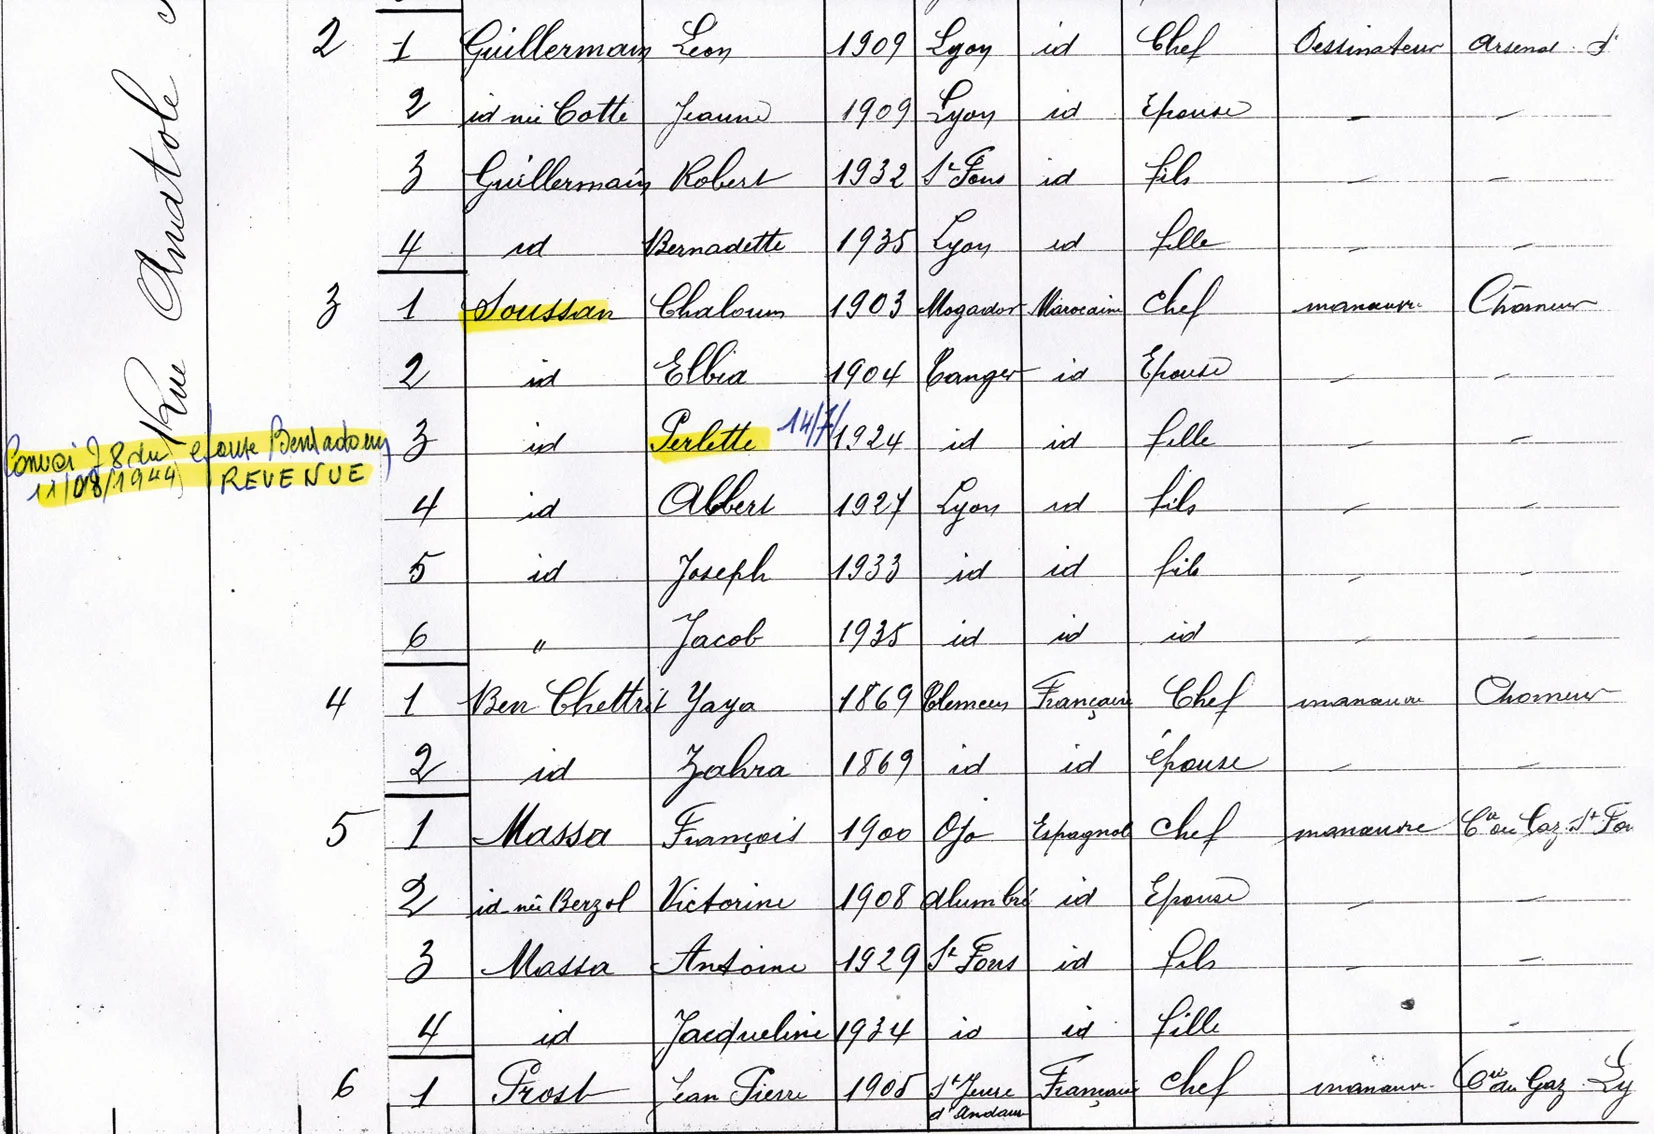 Rue Anatole
2 1 Guillermain Léon 1909 Lyon id Chef Dessinateur Arsenal
2 id née Cotte Jeanne 1909 Lyon id Epouse - -
3 Guillermain Robert 1932 St Fons id fils - -
4 id Bernadette 1935 Lyon id fille - -
3 1 Soussan Chaloum 1903 Mogador Marocaine Chef manœuvre Chômeur
2 id Elbia 1904 Tanger id Epouse - -
3 id Perlette 14/7/ 1924 id id fille - -
Convoi 78 du épouse Bensadoun
11/08/1944 REVENUE
4 id Albert 1927 Lyon id fils - -
5 id Joseph 1933 id id fils - -
6 " Jacob 1935 id id id - -
4 1 Ben Chettrit Yaya 1869 Française Chef manœuvre Chomeur
2 id Zahra 1869 id id épouse - -
5 1 Massa François 1900 Ojo Espagnol Chef manœuvre Cie du Gaz St Fon
2 id née Berzol Victorine 1908 id Epouse - -
3 Massa Antoine 1929 St Fons id fils - -
4 id Jacqueline 1934 id id fille -
6 1 Prost Jean Pierre 1905 St Jeure d'Andaure Français Chef manœuvre Cie du Gaz Ly